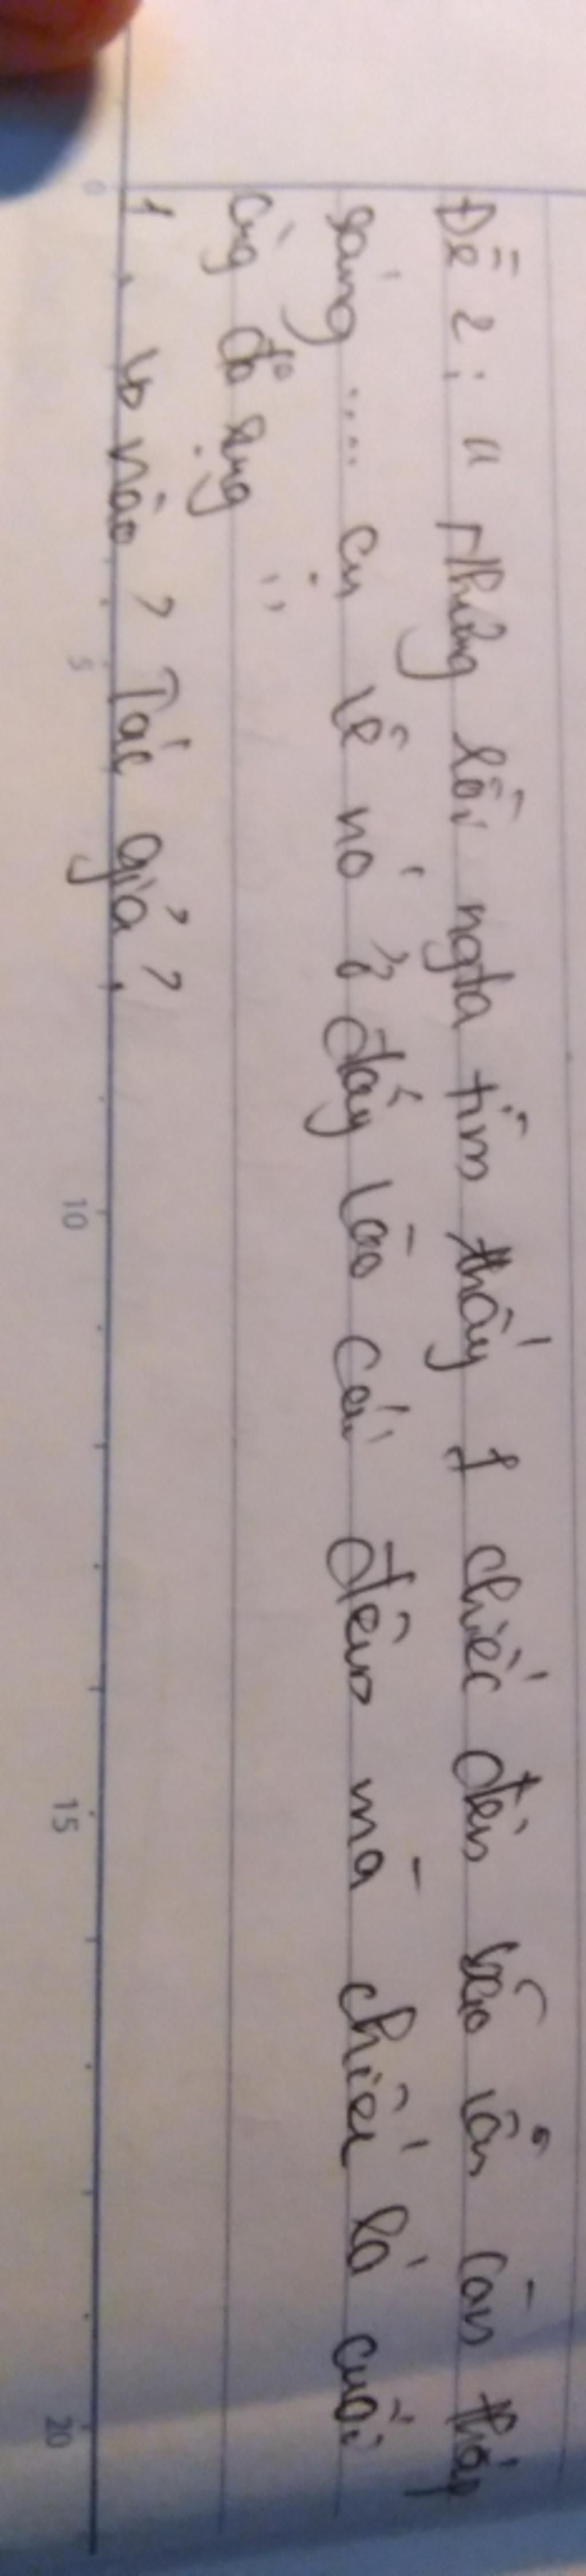 Đề 2: " Những lồi ngta tìm thấy 1 chiếc đèn bão vẫn còn thắp
sáng .... cụ vẽ nó ở đấy vào cái đêm mà chiếc lá cuối
cùng đã rụng "
1, vb nào? Tác giả?
0
5
10
15
20